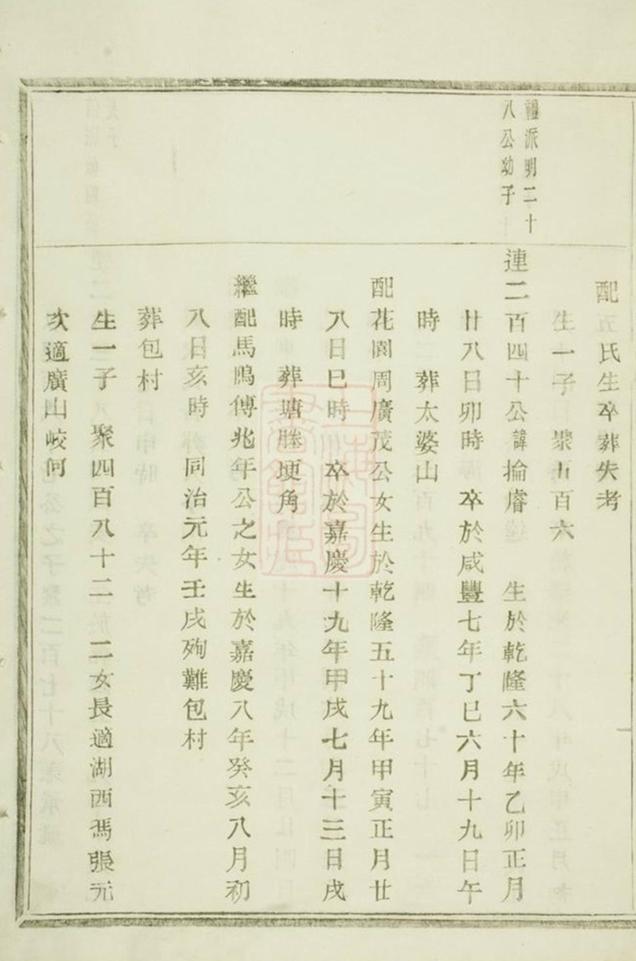 配五氏生卒葬失考
生一子 聚五百六
禮派明二十
八公幼子
連二百四十公諱掄濬 生於乾隆六十年乙卯正月
廿八日卯時 卒於咸豐七年丁巳六月十九日午
時 葬太婆山
配花園周廣茂公女生於乾隆五十九年甲寅正月廿
八日巳時 卒於嘉慶十九年甲戌七月十三日戌
時 葬塘塍埂角
繼配馬鴫傅兆年公之女生於嘉慶八年癸亥八月初
八日亥時 同治元年壬戌殉難包村
葬包村
生一子 聚四百八十二 二女長適湖西馮張元
次適廣山峧何